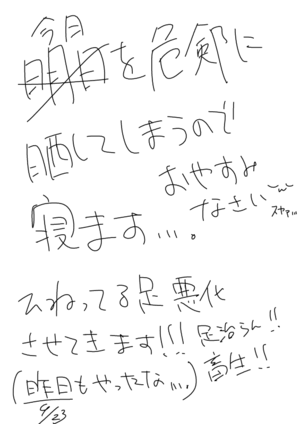 今日
明日を危険に
晒してしまうので
寝ます….
おやすみ
なさい
スヤァ…
ひねってる足悪化
させてきます!!!
足治らん!!
(昨日もやったな….)
畜生!!
9/23